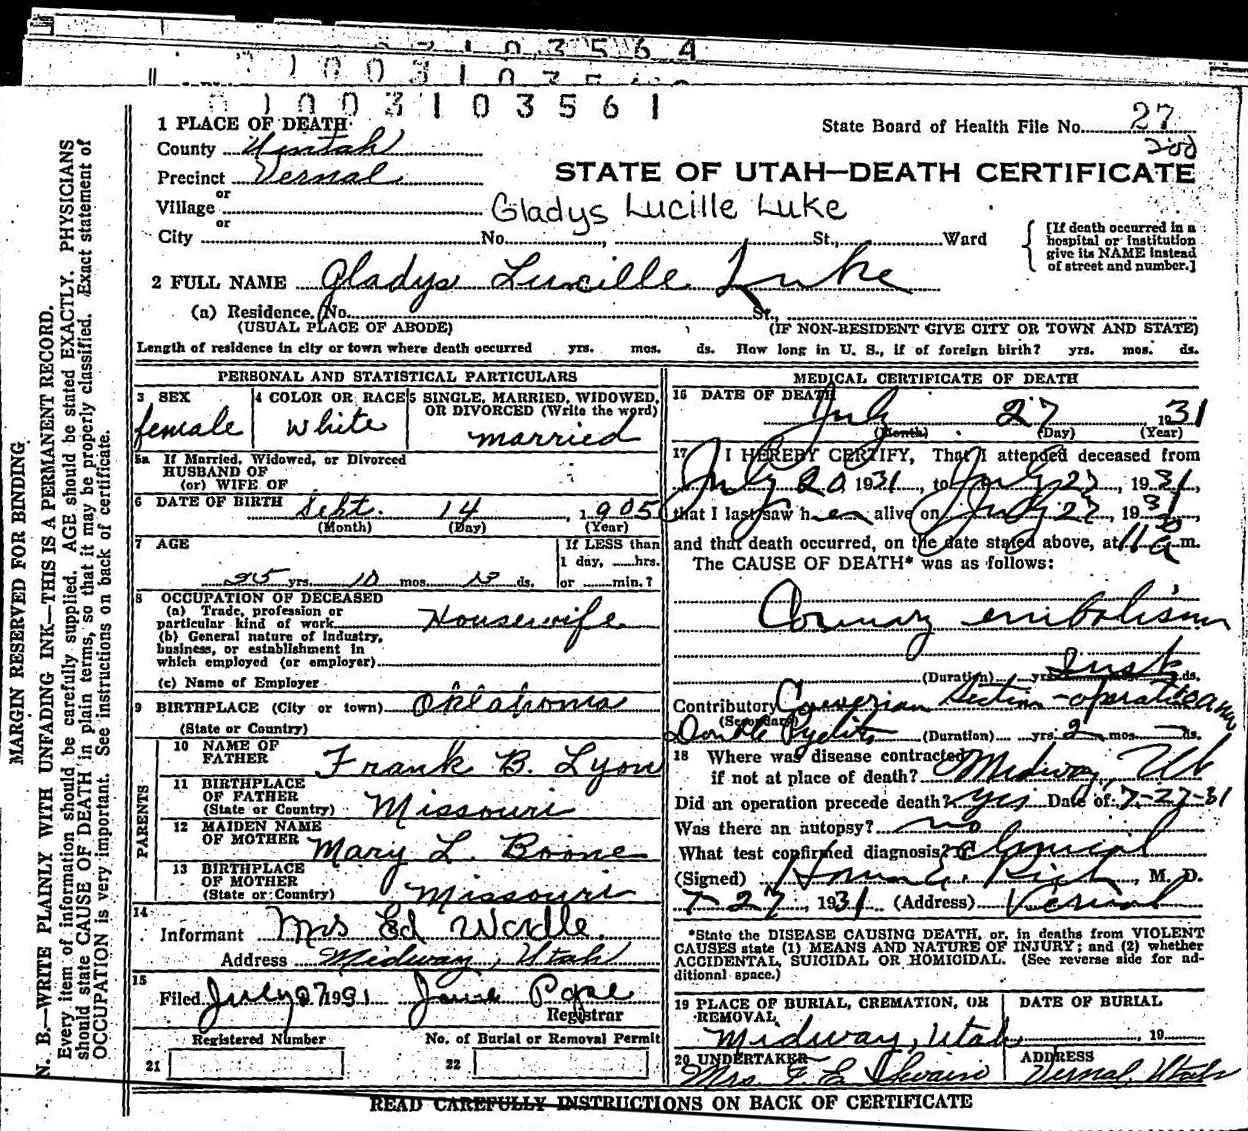 3 1 0 3 5 6 4
1 0 0 3 1 0 3 5
0 1 0 0 3 1 0 3 5 6 1
State Board of Health File No. 27
200
1 PLACE OF DEATH
County Uintah
Precinct Vernal
STATE OF UTAH—DEATH CERTIFICATE
or
Village
Gladys Lucille Luke
or
City No. , St., Ward
[If death occurred in a hospital or institution give its NAME instead of street and number.]
2 FULL NAME Gladys Lucille Luke
(a) Residence. No. St.,
(USUAL PLACE OF ABODE) (IF NON-RESIDENT GIVE CITY OR TOWN AND STATE)
Length of residence in city or town where death occurred yrs. mos. ds. How long in U. S., if of foreign birth? yrs. mos. ds.
PERSONAL AND STATISTICAL PARTICULARS
3 SEX
female
4 COLOR OR RACE
White
5 SINGLE, MARRIED, WIDOWED,
OR DIVORCED (Write the word)
married
5a If Married, Widowed, or Divorced
HUSBAND OF
(or) WIFE OF
6 DATE OF BIRTH Sept. 14, 1905
(Month) (Day) (Year)
7 AGE
If LESS than
1 day, hrs.
25 yrs. 10 mos. 13 ds. or min.?
8 OCCUPATION OF DECEASED
(a) Trade, profession or
particular kind of work Housewife
(b) General nature of industry,
business, or establishment in
which employed (or employer)
(c) Name of Employer
9 BIRTHPLACE (City or town) Oklahoma
(State or Country)
PARENTS
10 NAME OF
FATHER Frank B. Lyon
11 BIRTHPLACE
OF FATHER
(State or Country) Missouri
12 MAIDEN NAME
OF MOTHER Mary L. Boone
13 BIRTHPLACE
OF MOTHER
(State or Country) Missouri
14
Informant Mrs Ed Wardle.
Address Midway, Utah
15
Filed July 27 1931 Pope
Registrar
Registered Number No. of Burial or Removal Permit
21 22
MEDICAL CERTIFICATE OF DEATH
16 DATE OF DEATH
July 27 1931
(Month) (Day) (Year)
17 I HEREBY CERTIFY, That I attended deceased from
July 20, 1931, to July 27, 1931,
that I last saw her alive on July 27, 1931,
and that death occurred, on the date stated above, at 11 30 a m.
The CAUSE OF DEATH* was as follows:
Coronary embolism
(Duration) yrs. Inst. ds.
Contributory Caesarian Section - operation
(Secondary)
Double Pyelitis (Duration) yrs. 2 mos. ds.
18 Where was disease contracted
if not at place of death? Midway, Ut
Did an operation precede death? yes Date of 7-27-31
Was there an autopsy? no
What test confirmed diagnosis? Clinical
(Signed) , M. D.
7-27, 1931 (Address) Vernal
*State the DISEASE CAUSING DEATH, or, in deaths from VIOLENT
CAUSES state (1) MEANS AND NATURE OF INJURY; and (2) whether
ACCIDENTAL, SUICIDAL OR HOMICIDAL. (See reverse side for ad-
ditional space.)
19 PLACE OF BURIAL, CREMATION, OR
REMOVAL
Midway, Utah
DATE OF BURIAL
, 19
20 UNDERTAKER
Mrs. Swain
ADDRESS
Vernal, Utah
READ CAREFULLY INSTRUCTIONS ON BACK OF CERTIFICATE
MARGIN RESERVED FOR BINDING
N. B.—WRITE PLAINLY WITH UNFADING INK—THIS IS A PERMANENT RECORD.
Every item of information should be carefully supplied. AGE should be stated EXACTLY. PHYSICIANS
should state CAUSE OF DEATH in plain terms, so that it may be properly classified. Exact statement of
OCCUPATION is very important. See instructions on back of certificate.